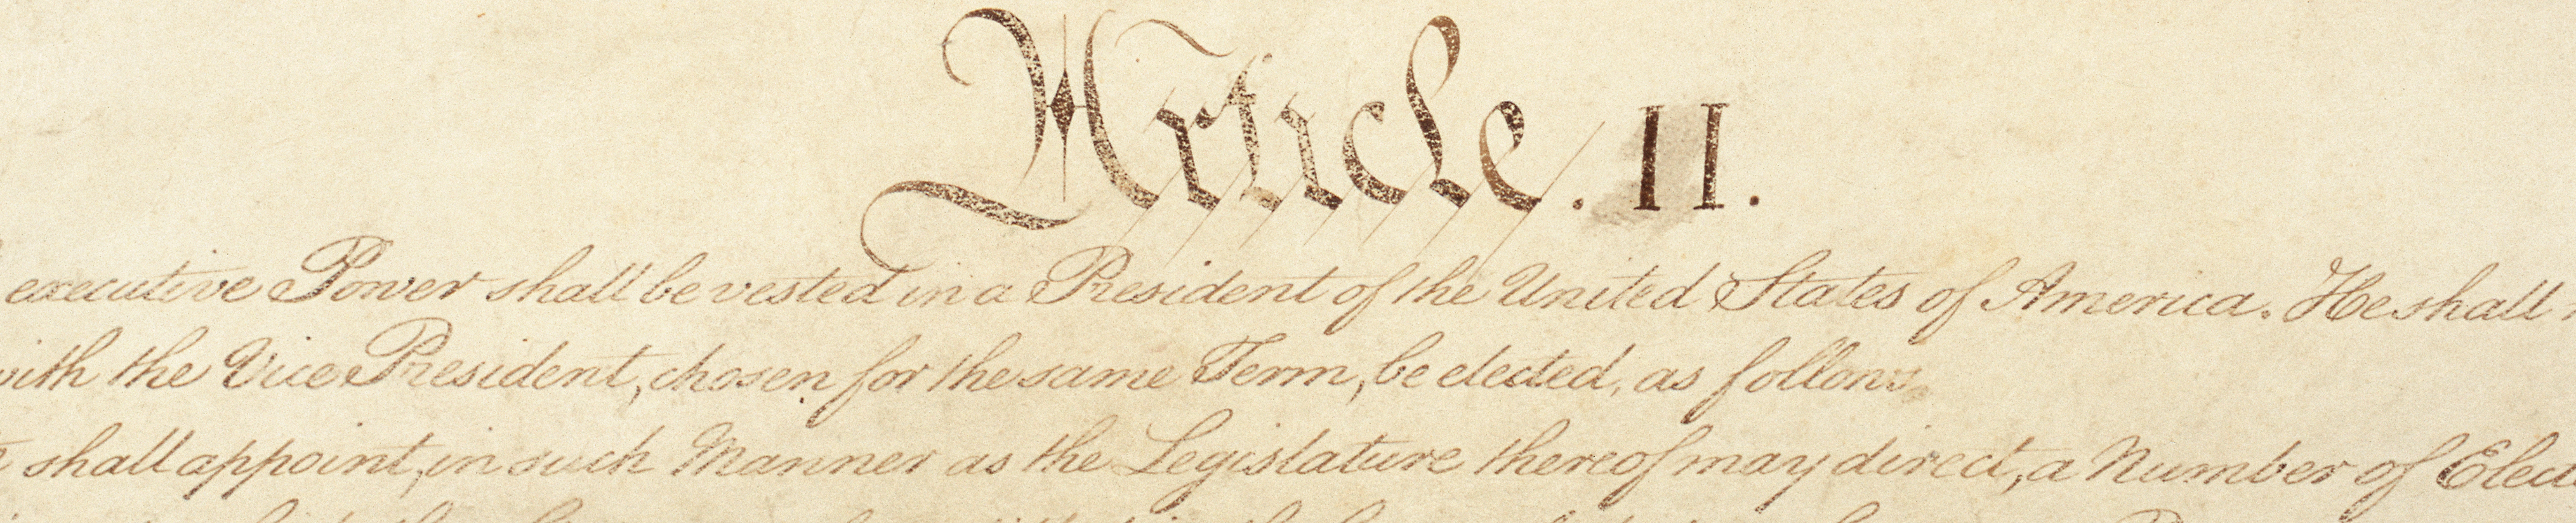 Article. II.
executive Power shall be vested in a President of the United States of America. He shall
with the Vice President, chosen for the same Term, be elected, as follows
shall appoint, in such Manner as the Legislature thereof may direct, a Number of Elect